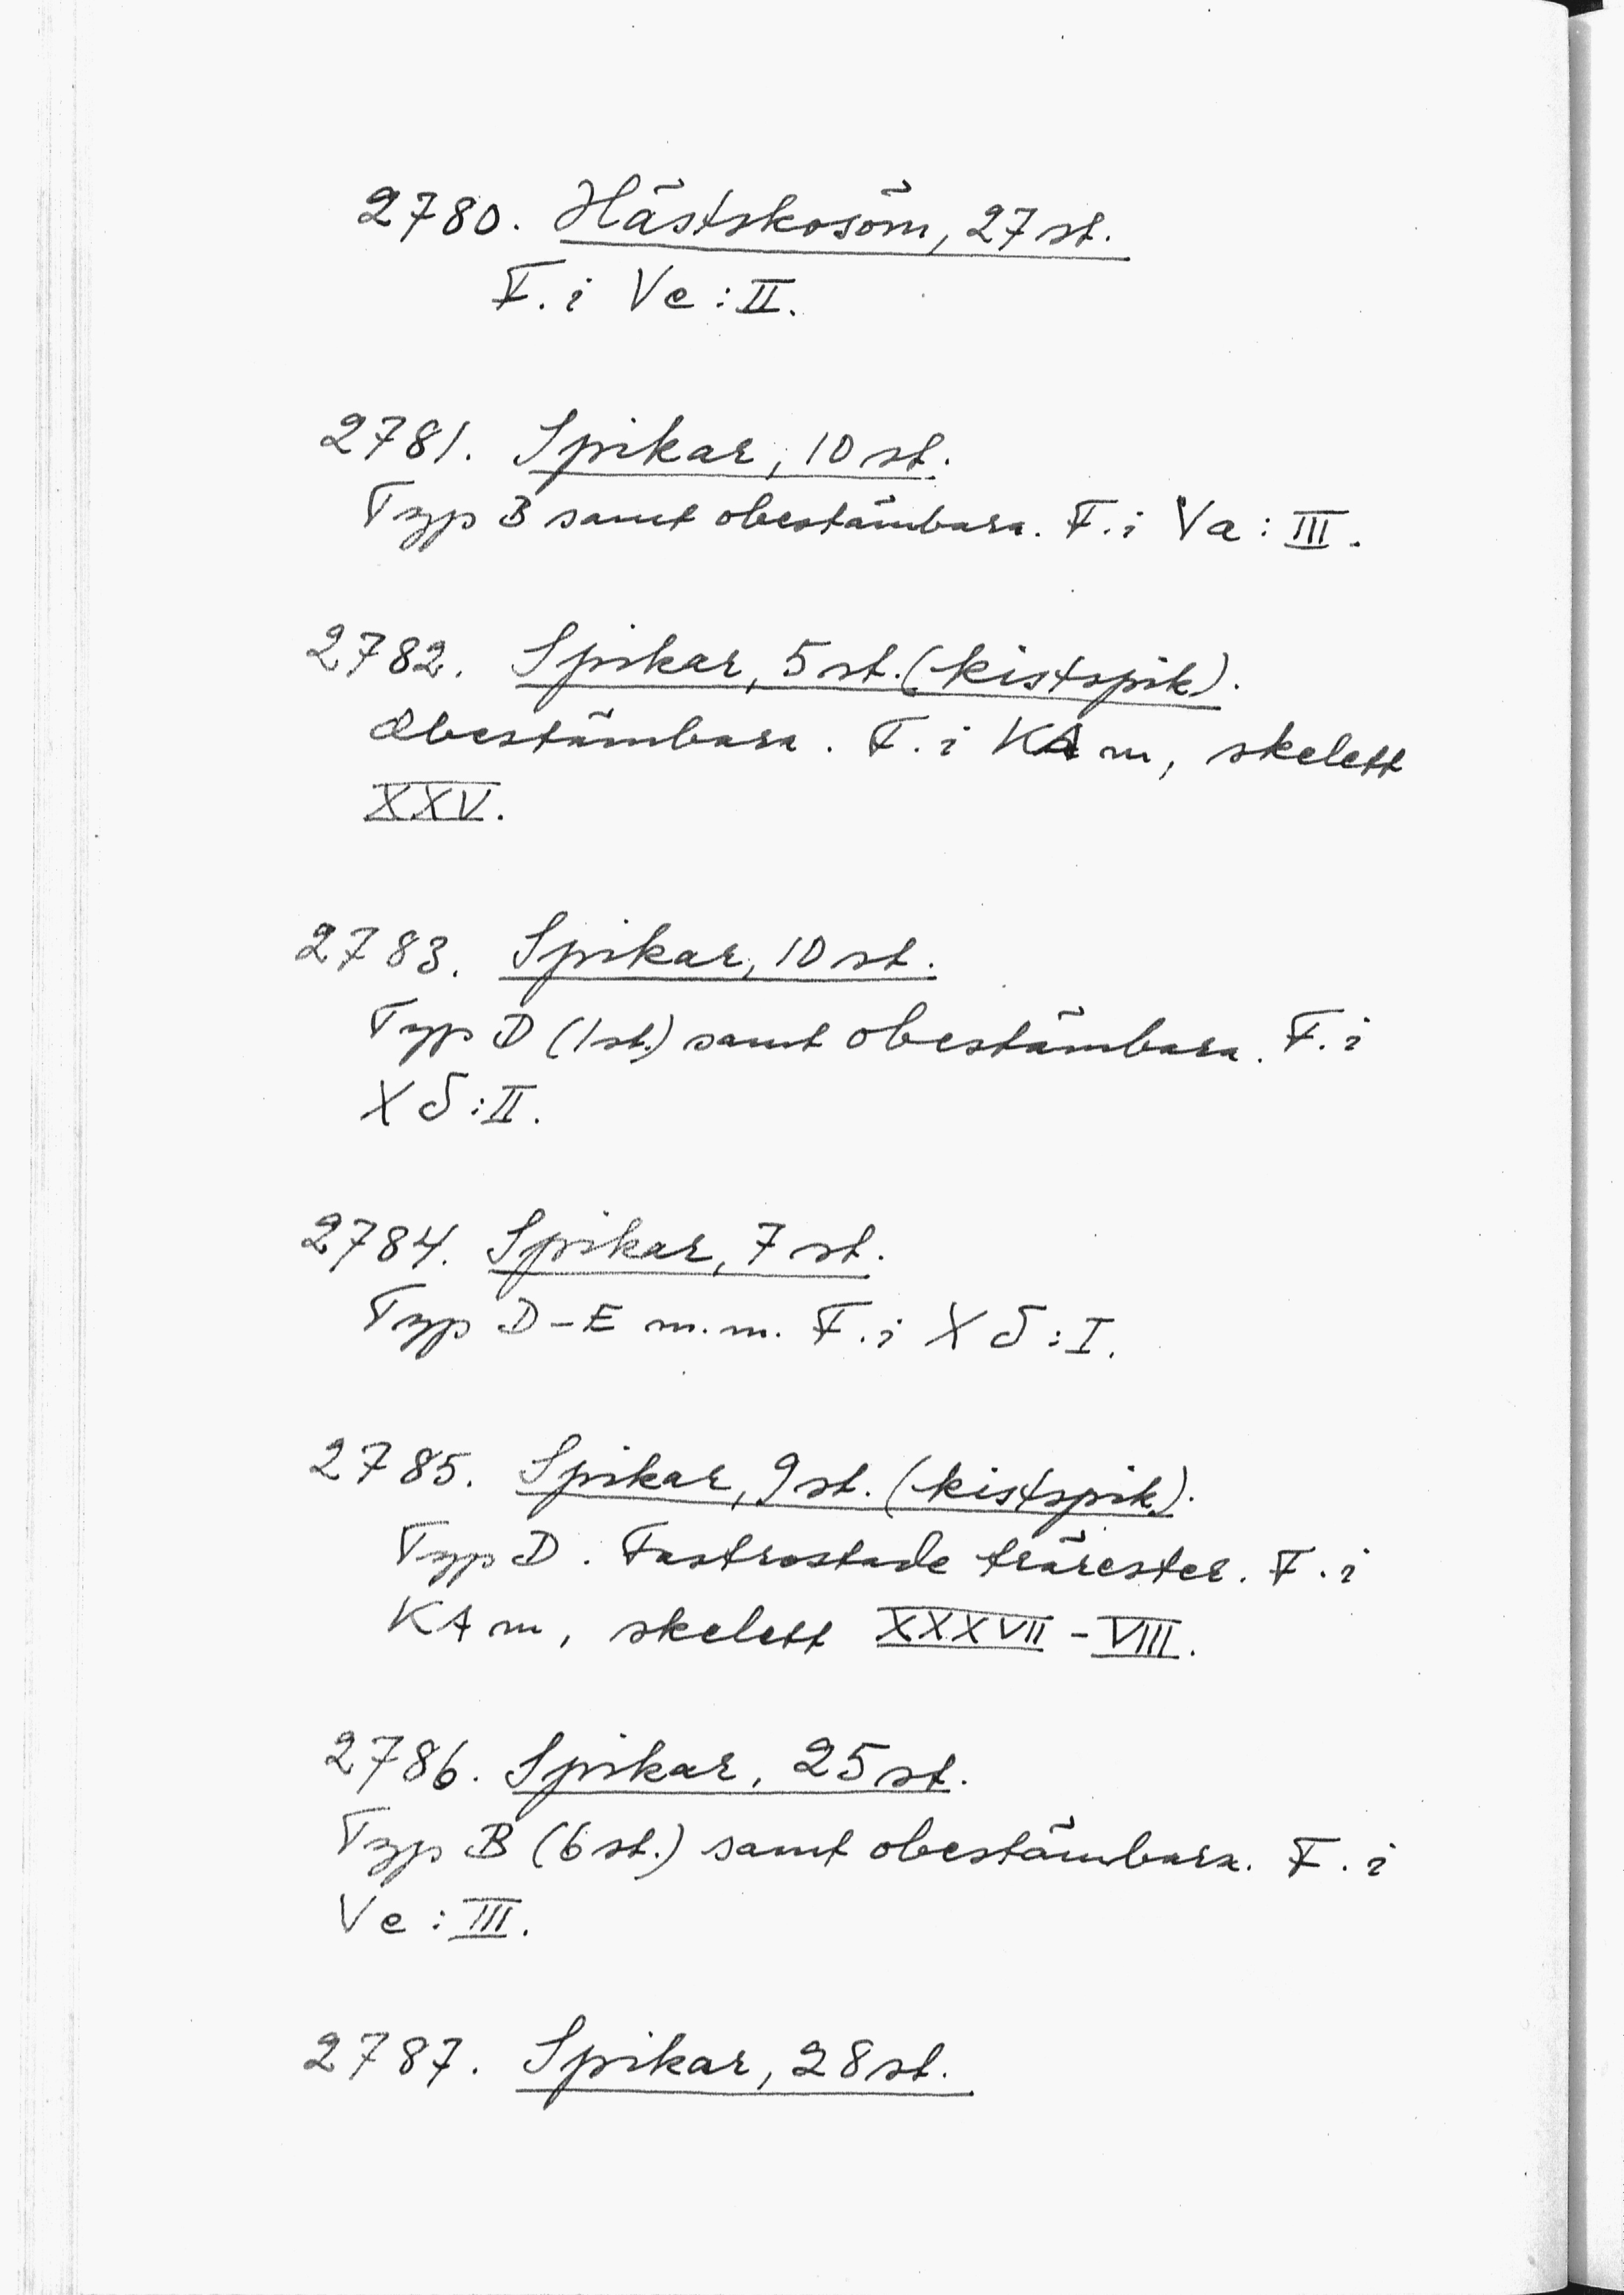 2780. Hästskosöm, 27 st.
F. i Ve : II.
2781. Spikar, 10 st.
Typ B samt obestämbara. F. i Va : III.
2782. Spikar, 5 st. (kistspik).
Obestämbara. F. i KA m, skelett
XXV.
2783. Spikar, 10 st.
Typ D (1 st.) samt obestämbara. F. i
X δ : II.
2784. Spikar, 7 st.
Typ D-E m.m. F. i X δ : I.
2785. Spikar, 9 st. (kistspik).
Typ D. Fastrostade trärester. F. i
KA m, skelett XXXVII - VIII.
2786. Spikar, 25 st.
Typ B (6 st.) samt obestämbara. F. i
Ve : III.
2787. Spikar, 28 st.